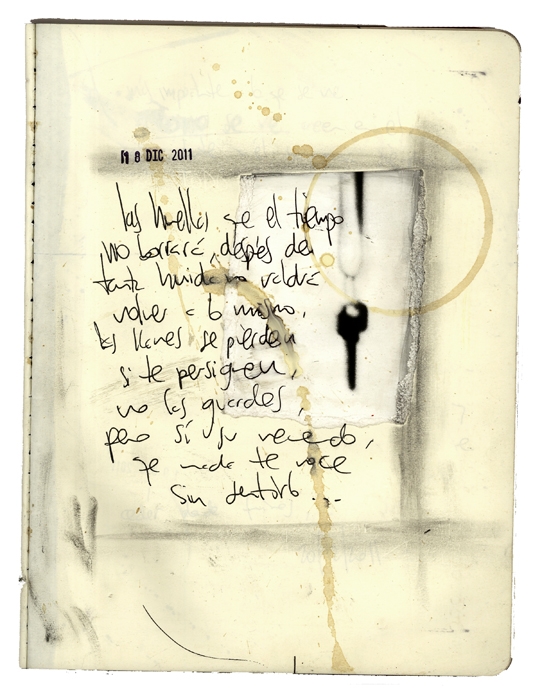 18 DIC 2011
las huellas que el tiempo
no borrará, después de
tanta huida no valdrá
volver a lo mismo,
las llaves se pierden
si te persiguen,
no las guardes,
pero sí su recuerdo,
que nada te roce
sin sentirlo...